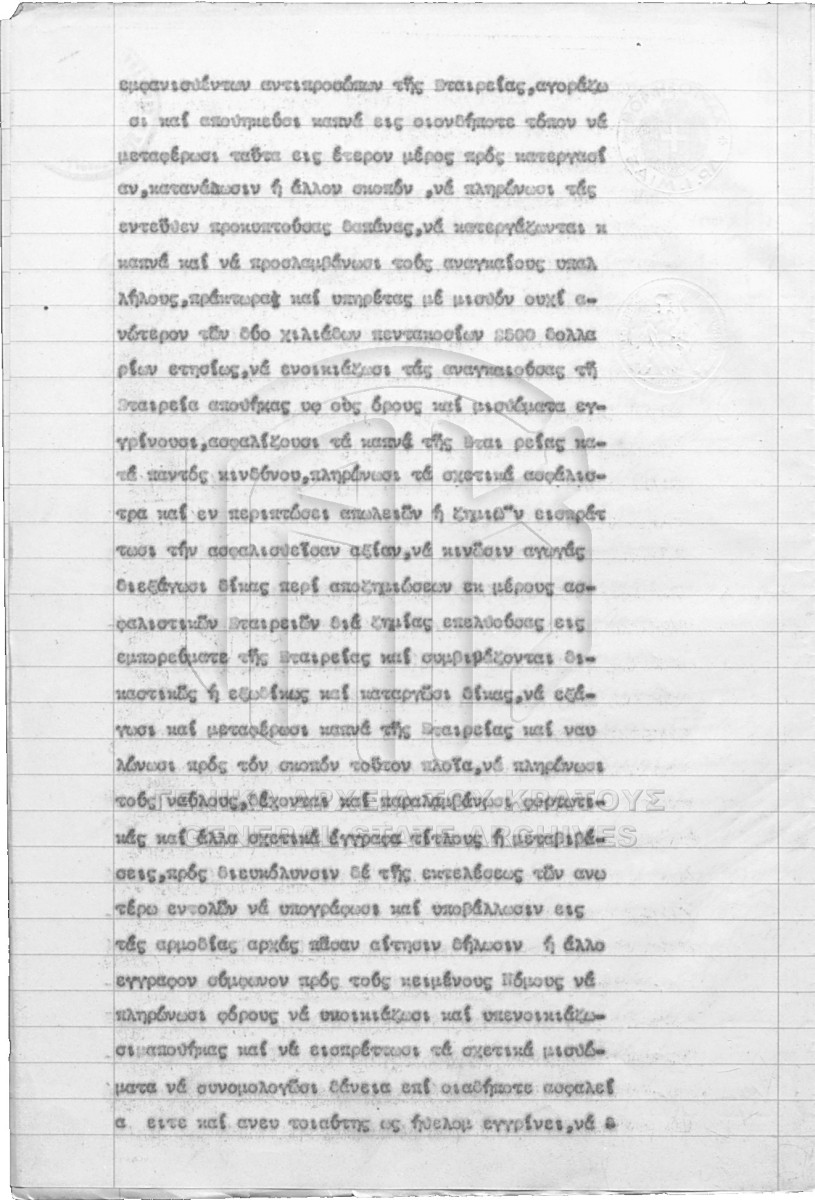 εμφανισθέντων αντιπροσώπων τῆς Εταιρείας,αγοράζω
σι καί αποθηκεύσι καπνά εις οιονδήποτε τόπον νά
μεταφέρωσι ταῦτα εις έτερον μέρος πρός κατεργασί
αν,κατανάλωσιν ή άλλον σκοπόν ,νά πληρώνωσι τάς
εντεῦθεν προκυπτούσας δαπάνας,νά κατεργάζωνται κ
καπνά καί νά προσλαμβάνωσι τούς αναγκαίους υπαλ
λήλους,πράκτορας καί υπηρέτας μέ μισθόν ουχί α-
νώτερον τῶν δύο χιλιάδων πεντακοσίων 2500 δολλα
ρίων ετησίως,νά ενοικιάζωσι τάς αναγκαιούσας τῆ
Εταιρεία αποθήκας υφ οὓς όρους καί μισθώματα εγ-
γρίνουσι,ασφαλίζουσι τά καπνά τῆς Εται ρείας κα-
τά παντός κινδύνου,πληρώνωσι τά σχετικά ασφάλισ-
τρα καί εν περιπτώσει απωλειῶν ή ζημιῶν εισπράτ
τωσι τήν ασφαλισθεῖσαν αξίαν,νά κινῶσιν αγωγάς
διεξάγωσι δίκας περί αποζημιώσεων εκ μέρους ασ-
φαλιστικῶν Εταιρειῶν διά ζημίας επελθούσας εις
εμπορεύματε τῆς Εταιρείας καί συμβιβάζονται δι-
καστικῶς ή εξωδίκως καί καταργῶσι δίκας,νά εξά-
γωσι καί μεταφέρωσι καπνά τῆς Εταιρείας καί ναυ
λώνωσι πρός τόν σκοπόν τοῦτον πλοῖα,νά πληρώνωσι
τούς ναύλους,δέχονται καί παραλαμβάνωσι φορτωτι-
κάς καί άλλα σχετικά έγγραφα τίτλους ή μεταβιβά-
σεις,πρός διευκόλυνσιν δέ τῆς εκτελέσεως τῶν ανω
τέρω εντολῶν νά υπογράφωσι καί υποβάλλωσιν εις
τάς αρμοδίας αρχάς πᾶσαν αίτησιν δήλωσιν ή άλλο
εγγραφον σύμφωνον πρός τούς κειμένους Νόμους νά
πληρώνωσι φόρους νά υποικιάζωσι καί υπενοικιάζω-
σι αποθήκας καί νά εισπρέττωσι τά σχετικά μισθώ-
ματα νά συνομολογῶσι δάνεια επί οιαδήποτε ασφαλεί
α ειτε καί ανευ τοιαύτης ως ήθελομ εγγρίνει,νά
ΓΕΝΙΚΑ ΑΡΧΕΙΑ ΤΟΥ ΚΡΑΤΟΥΣ
GENERAL STATE ARCHIVES